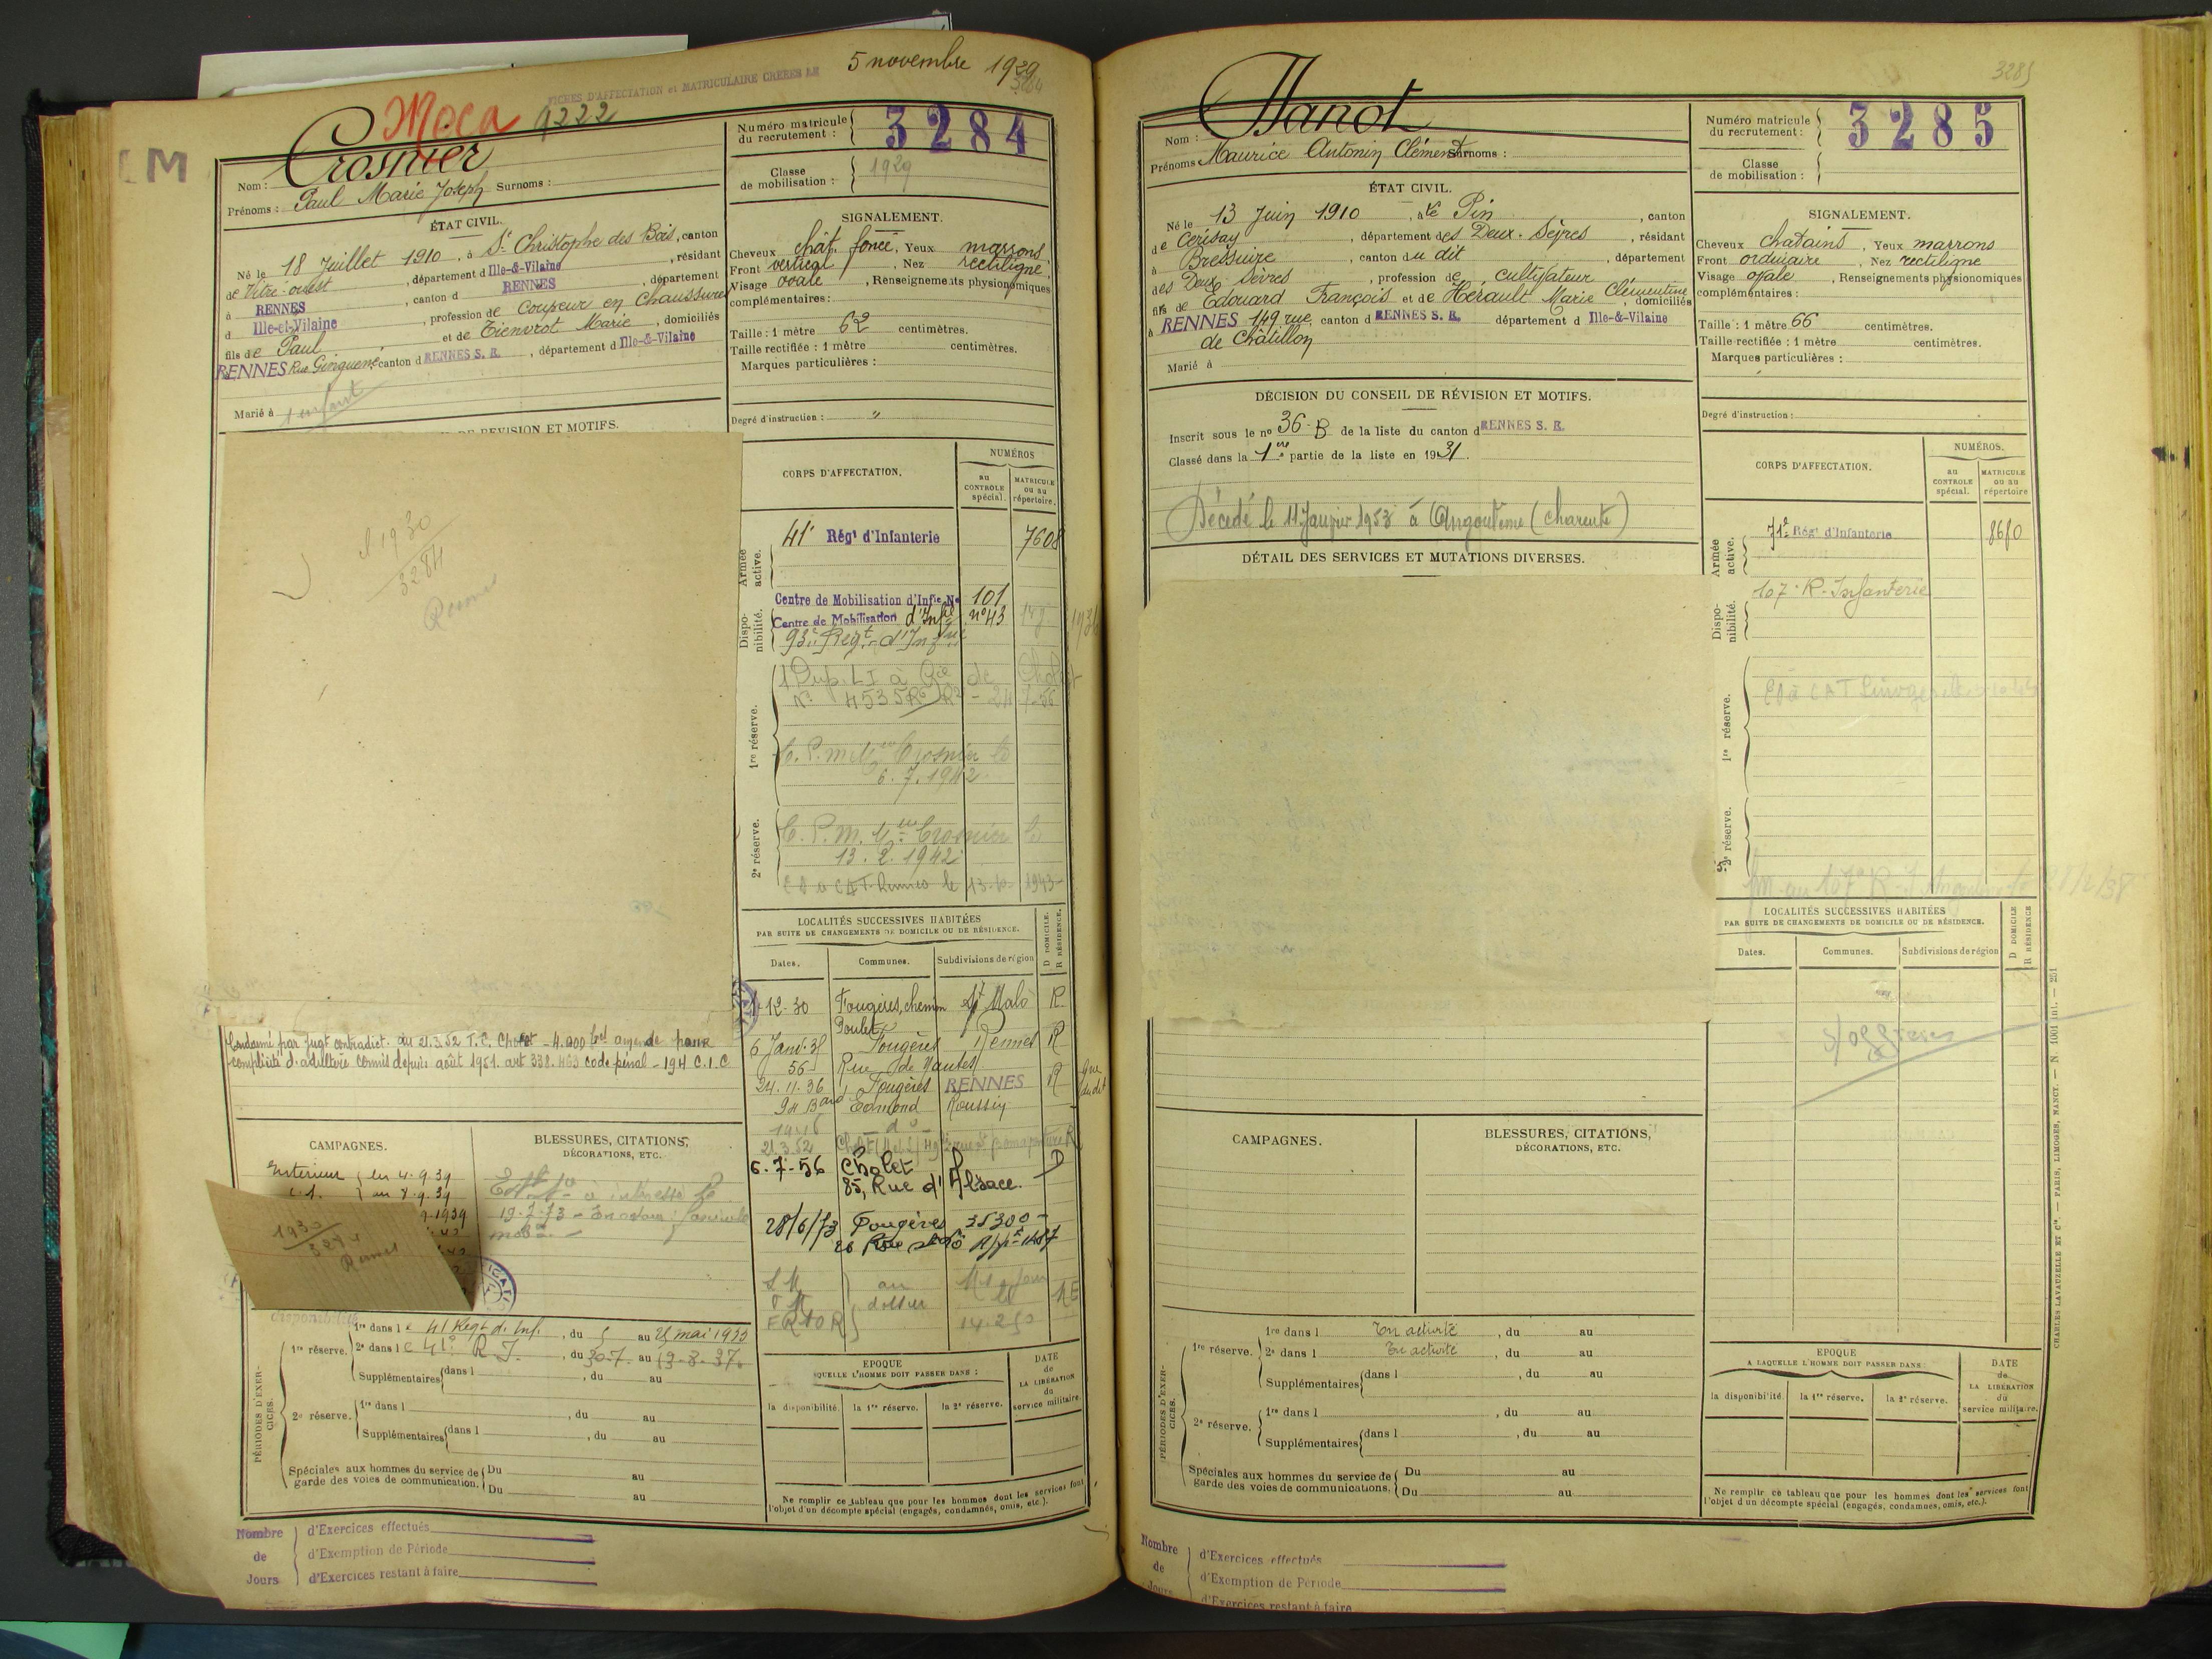 5 novembre 1929
3284
FICHES D'AFFECTATION et MATRICULAIRE CRÉÉES LE
Moca 9222
M
Nom : Crosnier
Prénoms : Paul Marie Joseph Surnoms :
Numéro matricule du recrutement : 3284
Classe de mobilisation : 1929
ÉTAT CIVIL.
Né le 18 Juillet 1910, à St Christophe des Bois, canton
de Vitré-ouest, département d Ille-&-Vilaine, résidant
à RENNES, canton d RENNES, département
d Ille-et-Vilaine, profession de Coupeur en chaussures
fils de Paul et de Tienvrot Marie, domiciliés
à RENNES Rue Ginguené canton d RENNES S. E., département d Ille-&-Vilaine
Marié à 1 enfant
SIGNALEMENT.
Cheveux chât. foncé, Yeux marrons
Front vertical, Nez rectiligne
Visage ovale, Renseignements physionomiques
complémentaires :
Taille : 1 mètre 62 centimètres.
Taille rectifiée : 1 mètre centimètres.
Marques particulières :
Degré d'instruction : "
DE REVISION ET MOTIFS.
cl 1930
3284
Rennes
CORPS D'AFFECTATION.
NUMÉROS
au CONTROLE spécial.
MATRICULE ou au répertoire.
Armée active.
41e Régt d'Infanterie 7608
Dispo-nibilité.
Centre de Mobilisation d'Infie No 101
Centre de Mobilisation d'Infie no 43
93e Regt d'Infie
1re réserve.
No 4535
Crosnier le
6.7.1942
2e réserve.
C.P.M. Crosnier le
13.2.1942
Rennes le 13-10-1943
LOCALITÉS SUCCESSIVES HABITÉES
PAR SUITE DE CHANGEMENTS DE DOMICILE OU DE RÉSIDENCE.
D DOMICILE.
R RÉSIDENCE.
Dates. Communes. Subdivisions de région
12-30 Fougères, chemin St Malo R
Poulet
6 Janv. 35 Fougères Rennes R
56 Rue de Nantes
24.11.36 Fougères RENNES R
94 Bard Edmond Roussin
21.3.52
6.7.56 Cholet D
85, Rue d'Alsace.
28/6/73 Fougères 35300
au
dossier
14.2.50
Condamné par Jugt contradict. du 21.3.52 T.C. Cholet - 4.000 frcs amende pour
complicité d'adultère commis depuis août 1951. art 338.463 code pénal - 194 C.I.C
CAMPAGNES.
BLESSURES, CITATIONS, DÉCORATIONS, ETC.
Intérieur du 4.9.39
au 7.9.39
9-1939
à intéressé le
19.2.73
1930
3284
Rennes
disponibilité
PÉRIODES D'EXER-CICES.
1re réserve.
1re dans le 41 Régt d. Inf., du 5 au 25 mai 1935
2e dans le 41e R I., du 30.7 au 19-8-37
Supplémentaires dans l , du au
2e réserve.
1re dans l , du au
Supplémentaires dans l , du au
Spéciales aux hommes du service de garde des voies de communication. Du au
Du au
EPOQUE
A LAQUELLE L'HOMME DOIT PASSER DANS :
la disponibilité. la 1re réserve. la 2e réserve.
DATE de LA LIBÉRATION du service militaire.
Ne remplir ce tableau que pour les hommes dont les services font
l'objet d'un décompte spécial (engagés, condamnés, omis, etc.).
Nombre de Jours
d'Exercices effectués
d'Exemption de Période
d'Exercices restant à faire
3285
Nom : Hanot
Prénoms Maurice Antonin Clément Surnoms :
Numéro matricule du recrutement : 3285
Classe de mobilisation :
ÉTAT CIVIL.
Né le 13 Juin 1910, à Le Pin, canton
de Cerisay, département des Deux-Sèvres, résidant
à Bressuire, canton du dit, département
des Deux Sèvres, profession de cultivateur
fils de Edouard François et de Hérault Marie Clémentine, domiciliés
à RENNES 149 rue canton d RENNES S. E. département d Ille-&-Vilaine
de Châtillon
Marié à
SIGNALEMENT.
Cheveux chatains, Yeux marrons
Front ordinaire, Nez rectiligne
Visage ovale, Renseignements physionomiques
complémentaires :
Taille : 1 mètre 66 centimètres.
Taille rectifiée : 1 mètre centimètres.
Marques particulières :
Degré d'instruction :
DÉCISION DU CONSEIL DE RÉVISION ET MOTIFS.
Inscrit sous le no 36-B de la liste du canton d RENNES S. E.
Classé dans la 1ere partie de la liste en 1931.
Décédé le 11 Janvier 1953 à Angoulême (Charente)
DÉTAIL DES SERVICES ET MUTATIONS DIVERSES.
CORPS D'AFFECTATION.
NUMÉROS.
au CONTROLE spécial.
MATRICULE ou au répertoire
Armée active.
71e Régt d'Infanterie 8680
Dispo-nibilité.
107e R. Infanterie
1re réserve.
2e réserve.
au 107e R.I. Angoulême
LOCALITÉS SUCCESSIVES HABITÉES
PAR SUITE DE CHANGEMENTS DE DOMICILE OU DE RÉSIDENCE.
D DOMICILE
R RÉSIDENCE
Dates. Communes. Subdivisions de région
S/officier
CAMPAGNES.
BLESSURES, CITATIONS, DÉCORATIONS, ETC.
PÉRIODES D'EXER-CICES.
1re réserve.
1re dans l En activité, du au
2e dans l En activité, du au
Supplémentaires dans l , du au
2e réserve.
1re dans l , du au
Supplémentaires dans l , du au
Spéciales aux hommes du service de garde des voies de communications. Du au
Du au
EPOQUE
A LAQUELLE L'HOMME DOIT PASSER DANS :
la disponibilité. la 1re réserve. la 2e réserve.
DATE de LA LIBÉRATION du service militaire.
Ne remplir ce tableau que pour les hommes dont les services font
l'objet d'un décompte spécial (engagés, condamnés, omis, etc.).
CHARLES LAVAUZELLE ET Cie. — PARIS, LIMOGES, NANCY. — N. 1001 int. — 251
Nombre de Jours
d'Exercices effectués
d'Exemption de Période
d'Exercices restant à faire